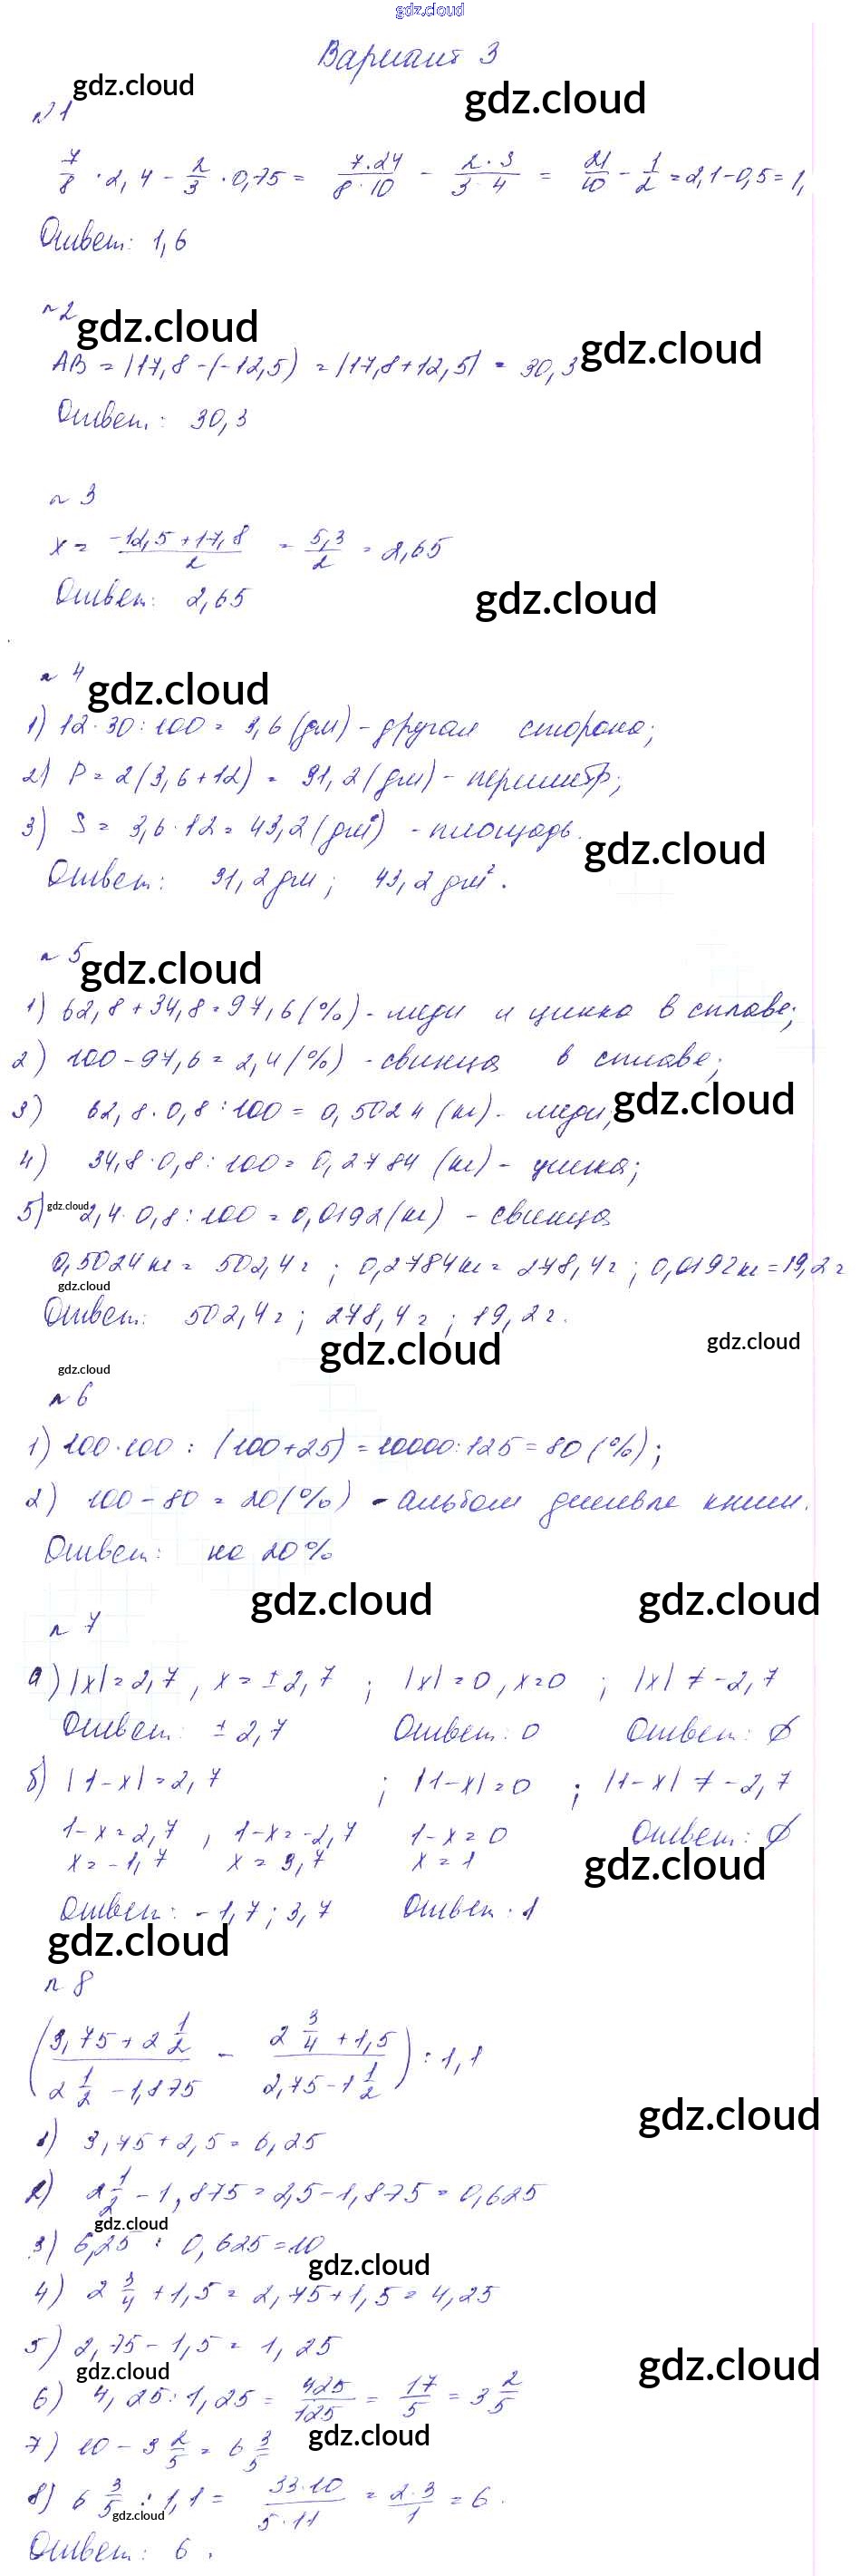 gdz.cloud
Вариант 3
gdz.cloud
gdz.cloud
№1
7/8 · 2,4 - 2/3 · 0,75 = 7·24/8·10 - 2·3/3·4 = 21/10 - 1/2 = 2,1-0,5=1,
Ответ: 1,6
№2
gdz.cloud
gdz.cloud
AB = |17,8-(-12,5) = |17,8+12,5| = 30,3
Ответ: 30,3
№3
x = -12,5+17,8/2 = 5,3/2 = 2,65
Ответ: 2,65
gdz.cloud
№4
gdz.cloud
1) 12·30:100 = 3,6 (дм) - другая сторона;
2) P = 2(3,6+12) = 31,2 (дм) - периметр;
3) S = 3,6·12 = 43,2 (дм²) - площадь.
gdz.cloud
Ответ: 31,2 дм; 43,2 дм².
№5
gdz.cloud
1) 62,8+34,8=97,6(%) - меди и цинка в сплаве;
2) 100-97,6=2,4(%) - свинца в сплаве;
3) 62,8·0,8:100=0,5024 (кг) - меди;
gdz.cloud
4) 34,8·0,8:100=0,2784 (кг) - цинка;
5) 2,4·0,8:100=0,0192(кг) - свинца
gdz.cloud
0,5024кг = 502,4г; 0,2784кг = 278,4г; 0,0192кг=19,2г
gdz.cloud
Ответ: 502,4г; 278,4г; 19,2г.
gdz.cloud
gdz.cloud
gdz.cloud
№6
1) 100·100 : (100+25) = 10000:125 = 80 (%);
2) 100-80 = 20(%) - альбом дешевле книги.
Ответ: на 20%
gdz.cloud
gdz.cloud
№7
а) |x|=2,7, x=±2,7; |x|=0, x=0; |x|≠-2,7
Ответ: ±2,7 Ответ: 0 Ответ: ∅
б) |1-x|=2,7; |1-x|=0; |1-x|≠-2,7
1-x=2,7, 1-x=-2,7 1-x=0 Ответ: ∅
x=-1,7 x=3,7 x=1
gdz.cloud
Ответ: -1,7; 3,7 Ответ: 1
gdz.cloud
№8
(3,75+2 1/2 / 2 1/2 - 1,875 - 2 3/4 + 1,5 / 2,75-1 1/2) : 1,1
gdz.cloud
1) 3,75+2,5=6,25
2) 2 1/2 - 1,875=2,5-1,875=0,625
gdz.cloud
3) 6,25 : 0,625=10
gdz.cloud
4) 2 3/4 + 1,5 = 2,75+1,5 = 4,25
5) 2,75-1,5 = 1,25
gdz.cloud
gdz.cloud
6) 4,25:1,25 = 425/125 = 17/5 = 3 2/5
gdz.cloud
7) 10 - 3 2/5 = 6 3/5
8) 6 3/5 : 1,1 = 33·10/5·11 = 2·3/1 = 6.
gdz.cloud
Ответ: 6.